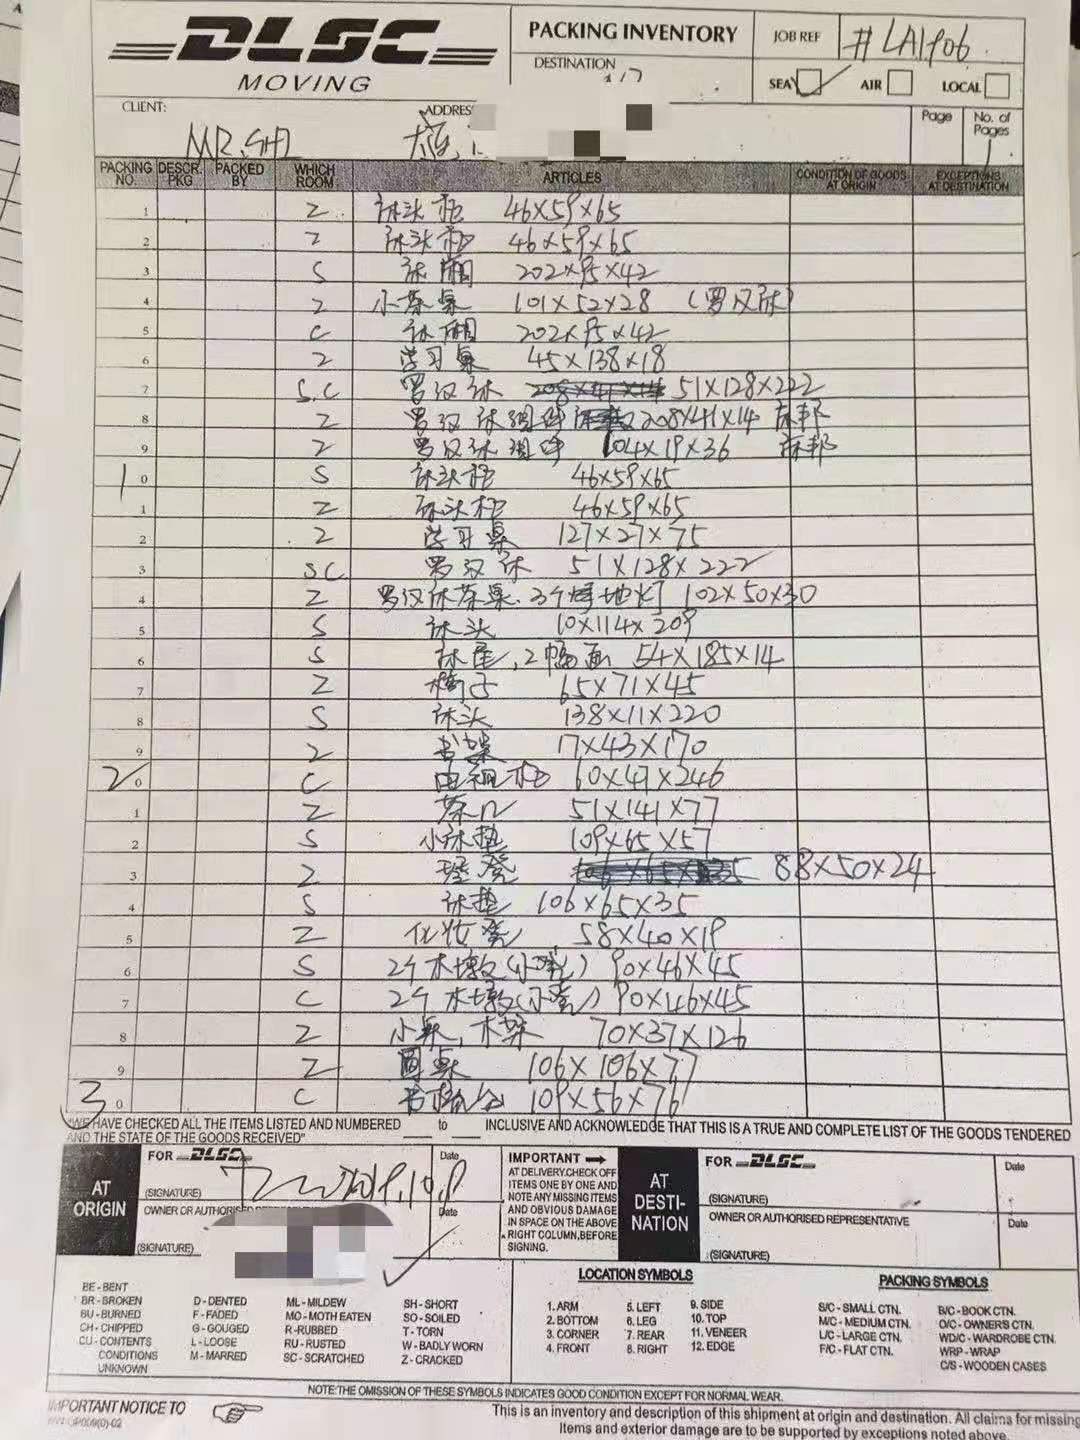 DLSC
MOVING
PACKING INVENTORY
DESTINATION
JOB REF #LA1906
SEA AIR LOCAL
CLIENT: MR.SHI
ADDRES
Page
No. of Pages
1
PACKING NO. DESCR. PKG PACKED BY WHICH ROOM ARTICLES CONDITION OF GOODS AT ORIGIN EXCEPTIONS AT DESTINATION
1 Z 床头柜 46×59×65
2 Z 床头柜 46×59×65
3 S 床厢 202×95×42
4 Z 小茶桌 101×52×28 (罗汉床)
5 C 床厢 202×95×42
6 Z 学习桌 45×138×18
7 S.C 罗汉床 208×41×14 51×128×222
8 Z 罗汉床组件 208×41×14 床邦
9 Z 罗汉床组件 104×19×36 床邦
10 S 床头柜 46×59×65
1 Z 床头柜 46×59×65
2 Z 学习桌 127×27×75
3 SC 罗汉床 51×128×222
4 Z 罗汉床茶桌. 3个 地灯 102×50×30
5 S 床头 10×114×209
6 S 床尾, 2幅画 54×185×14
7 Z 椅子 65×71×45
8 S 床头 138×11×220
9 Z 书架 17×43×170
20 C 电视柜 60×47×246
1 Z 茶几 51×141×77
2 S 小床垫 109×65×57
3 Z 88×50×24
4 S 床垫 106×65×35
5 Z 化妆凳 58×40×19
6 S 2个木墩(小凳) 90×46×45
7 C 2个木墩(小凳) 90×46×45
8 Z 小桌, 木架 70×37×126
9 Z 圆桌 106×106×77
30 C 109×56×76
"WE HAVE CHECKED ALL THE ITEMS LISTED AND NUMBERED ___ to ___ INCLUSIVE AND ACKNOWLEDGE THAT THIS IS A TRUE AND COMPLETE LIST OF THE GOODS TENDERED
AND THE STATE OF THE GOODS RECEIVED"
AT ORIGIN
FOR DLSC
(SIGNATURE)
Date
2019.10.9
OWNER OR AUTHORISED
(SIGNATURE)
Date
IMPORTANT
AT DELIVERY,CHECK OFF
ITEMS ONE BY ONE AND
NOTE ANY MISSING ITEMS
AND OBVIOUS DAMAGE
IN SPACE ON THE ABOVE
RIGHT COLUMN,BEFORE
SIGNING.
AT DESTI-NATION
FOR DLSC
(SIGNATURE)
Date
OWNER OR AUTHORISED REPRESENTATIVE
(SIGNATURE)
Date
BE - BENT
BR - BROKEN
BU - BURNED
CH - CHIPPED
CU - CONTENTS
CONDITIONS
UNKNOWN
D - DENTED
F - FADED
G - GOUGED
L - LOOSE
M - MARRED
ML - MILDEW
MO - MOTH EATEN
R - RUBBED
RU - RUSTED
SC - SCRATCHED
SH - SHORT
SO - SOILED
T - TORN
W - BADLY WORN
Z - CRACKED
LOCATION SYMBOLS
1. ARM
2. BOTTOM
3. CORNER
4. FRONT
5. LEFT
6. LEG
7. REAR
8. RIGHT
9. SIDE
10. TOP
11. VENEER
12. EDGE
PACKING SYMBOLS
S/C - SMALL CTN.
M/C - MEDIUM CTN.
L/C - LARGE CTN.
F/C - FLAT CTN.
B/C - BOOK CTN.
O/C - OWNER'S CTN.
WD/C - WARDROBE CTN.
WRP - WRAP
C/S - WOODEN CASES
NOTE:THE OMISSION OF THESE SYMBOLS INDICATES GOOD CONDITION EXCEPT FOR NORMAL WEAR.
IMPORTANT NOTICE TO
This is an inventory and description of this shipment at origin and destination. All claims for missing
items and exterior damage are to be supported by exceptions noted above.